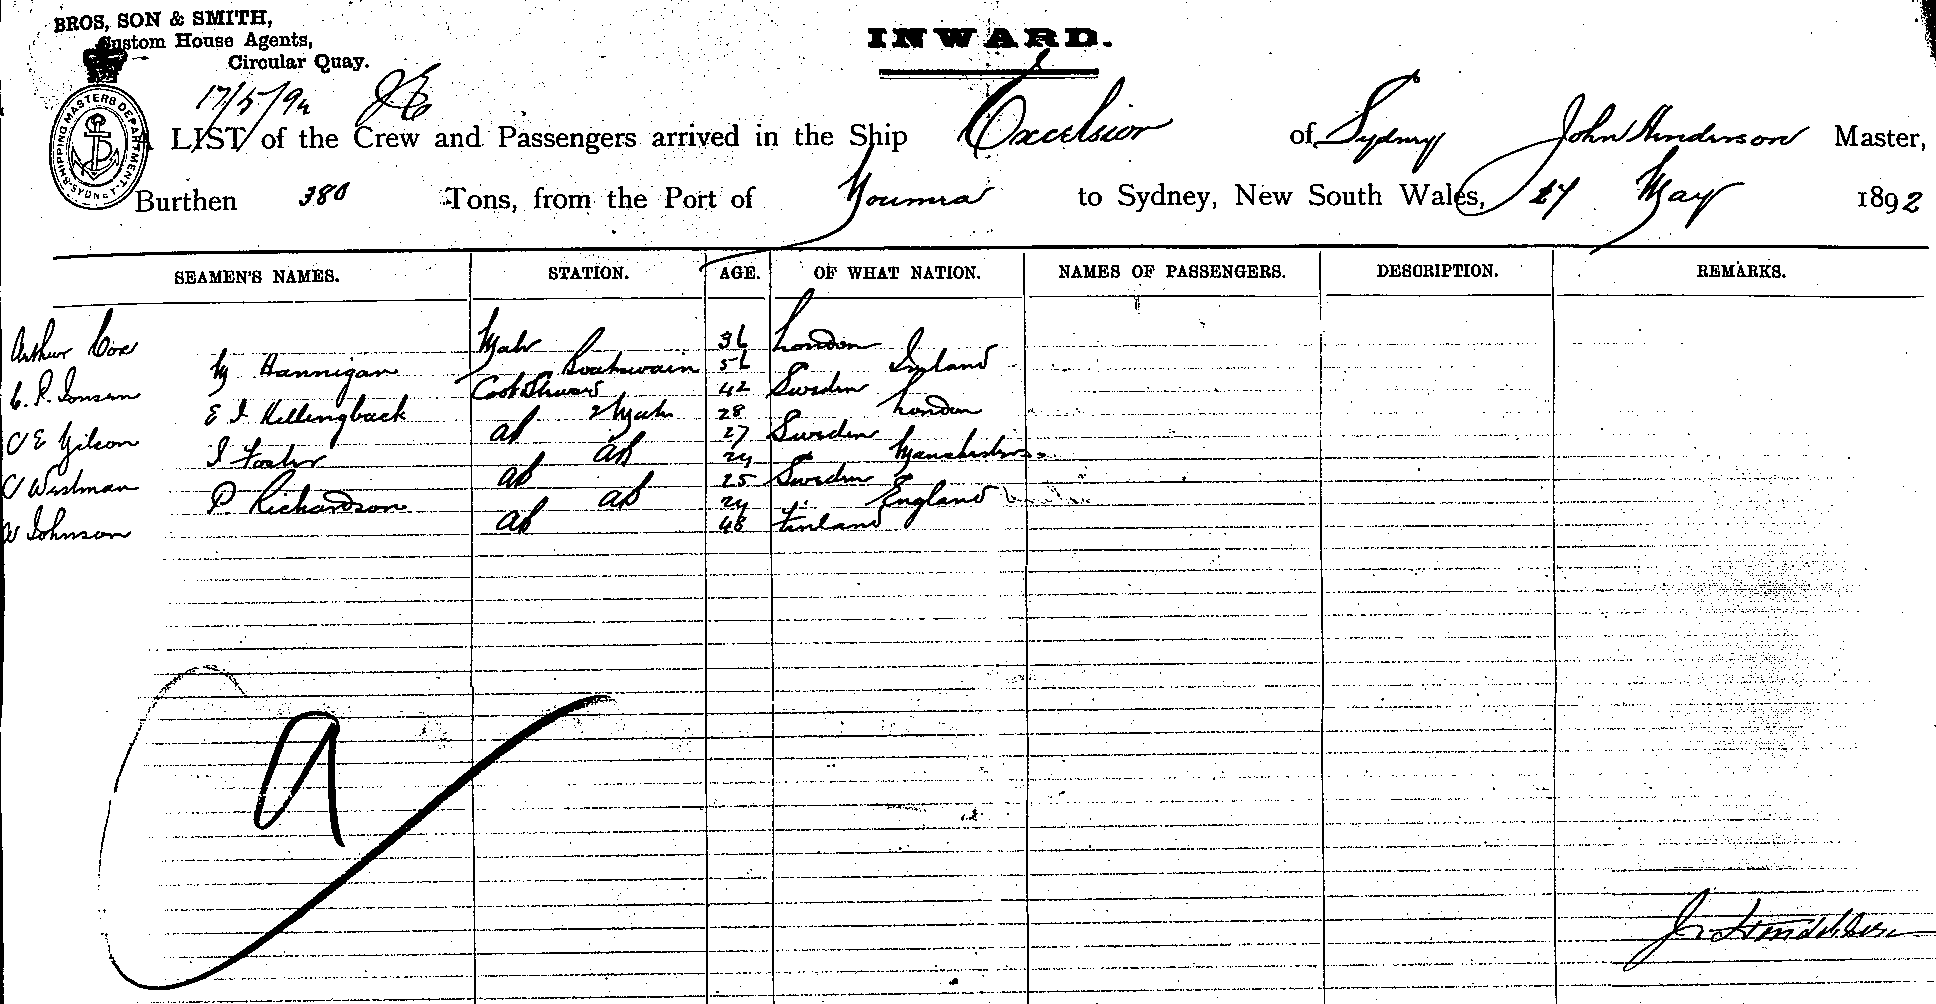 BROS, SON & SMITH,
Custom House Agents,
Circular Quay.
INWARD.
17/5/92
SHIPPING MASTERS DEPARTMENT
A LIST of the Crew and Passengers arrived in the Ship Excelsior of Sydney John Henderson Master,
Burthen 380 Tons, from the Port of to Sydney, New South Wales, May 1892
SEAMEN'S NAMES. STATION. AGE. OF WHAT NATION. NAMES OF PASSENGERS. DESCRIPTION. REMARKS.
Arthur Cox Mate 36 London
Hannigan Boatswain 56 Ireland
C. P. Jonsen Cook Steward 42 Sweden
E J Hellingback 2 Mate 28 London
C E Gilson ab 27 Sweden
J Foster ab 24 Manchester
C Westman ab 25 Sweden
P. Richardson ab 24 England
W Johnson ab 48 Finland
9